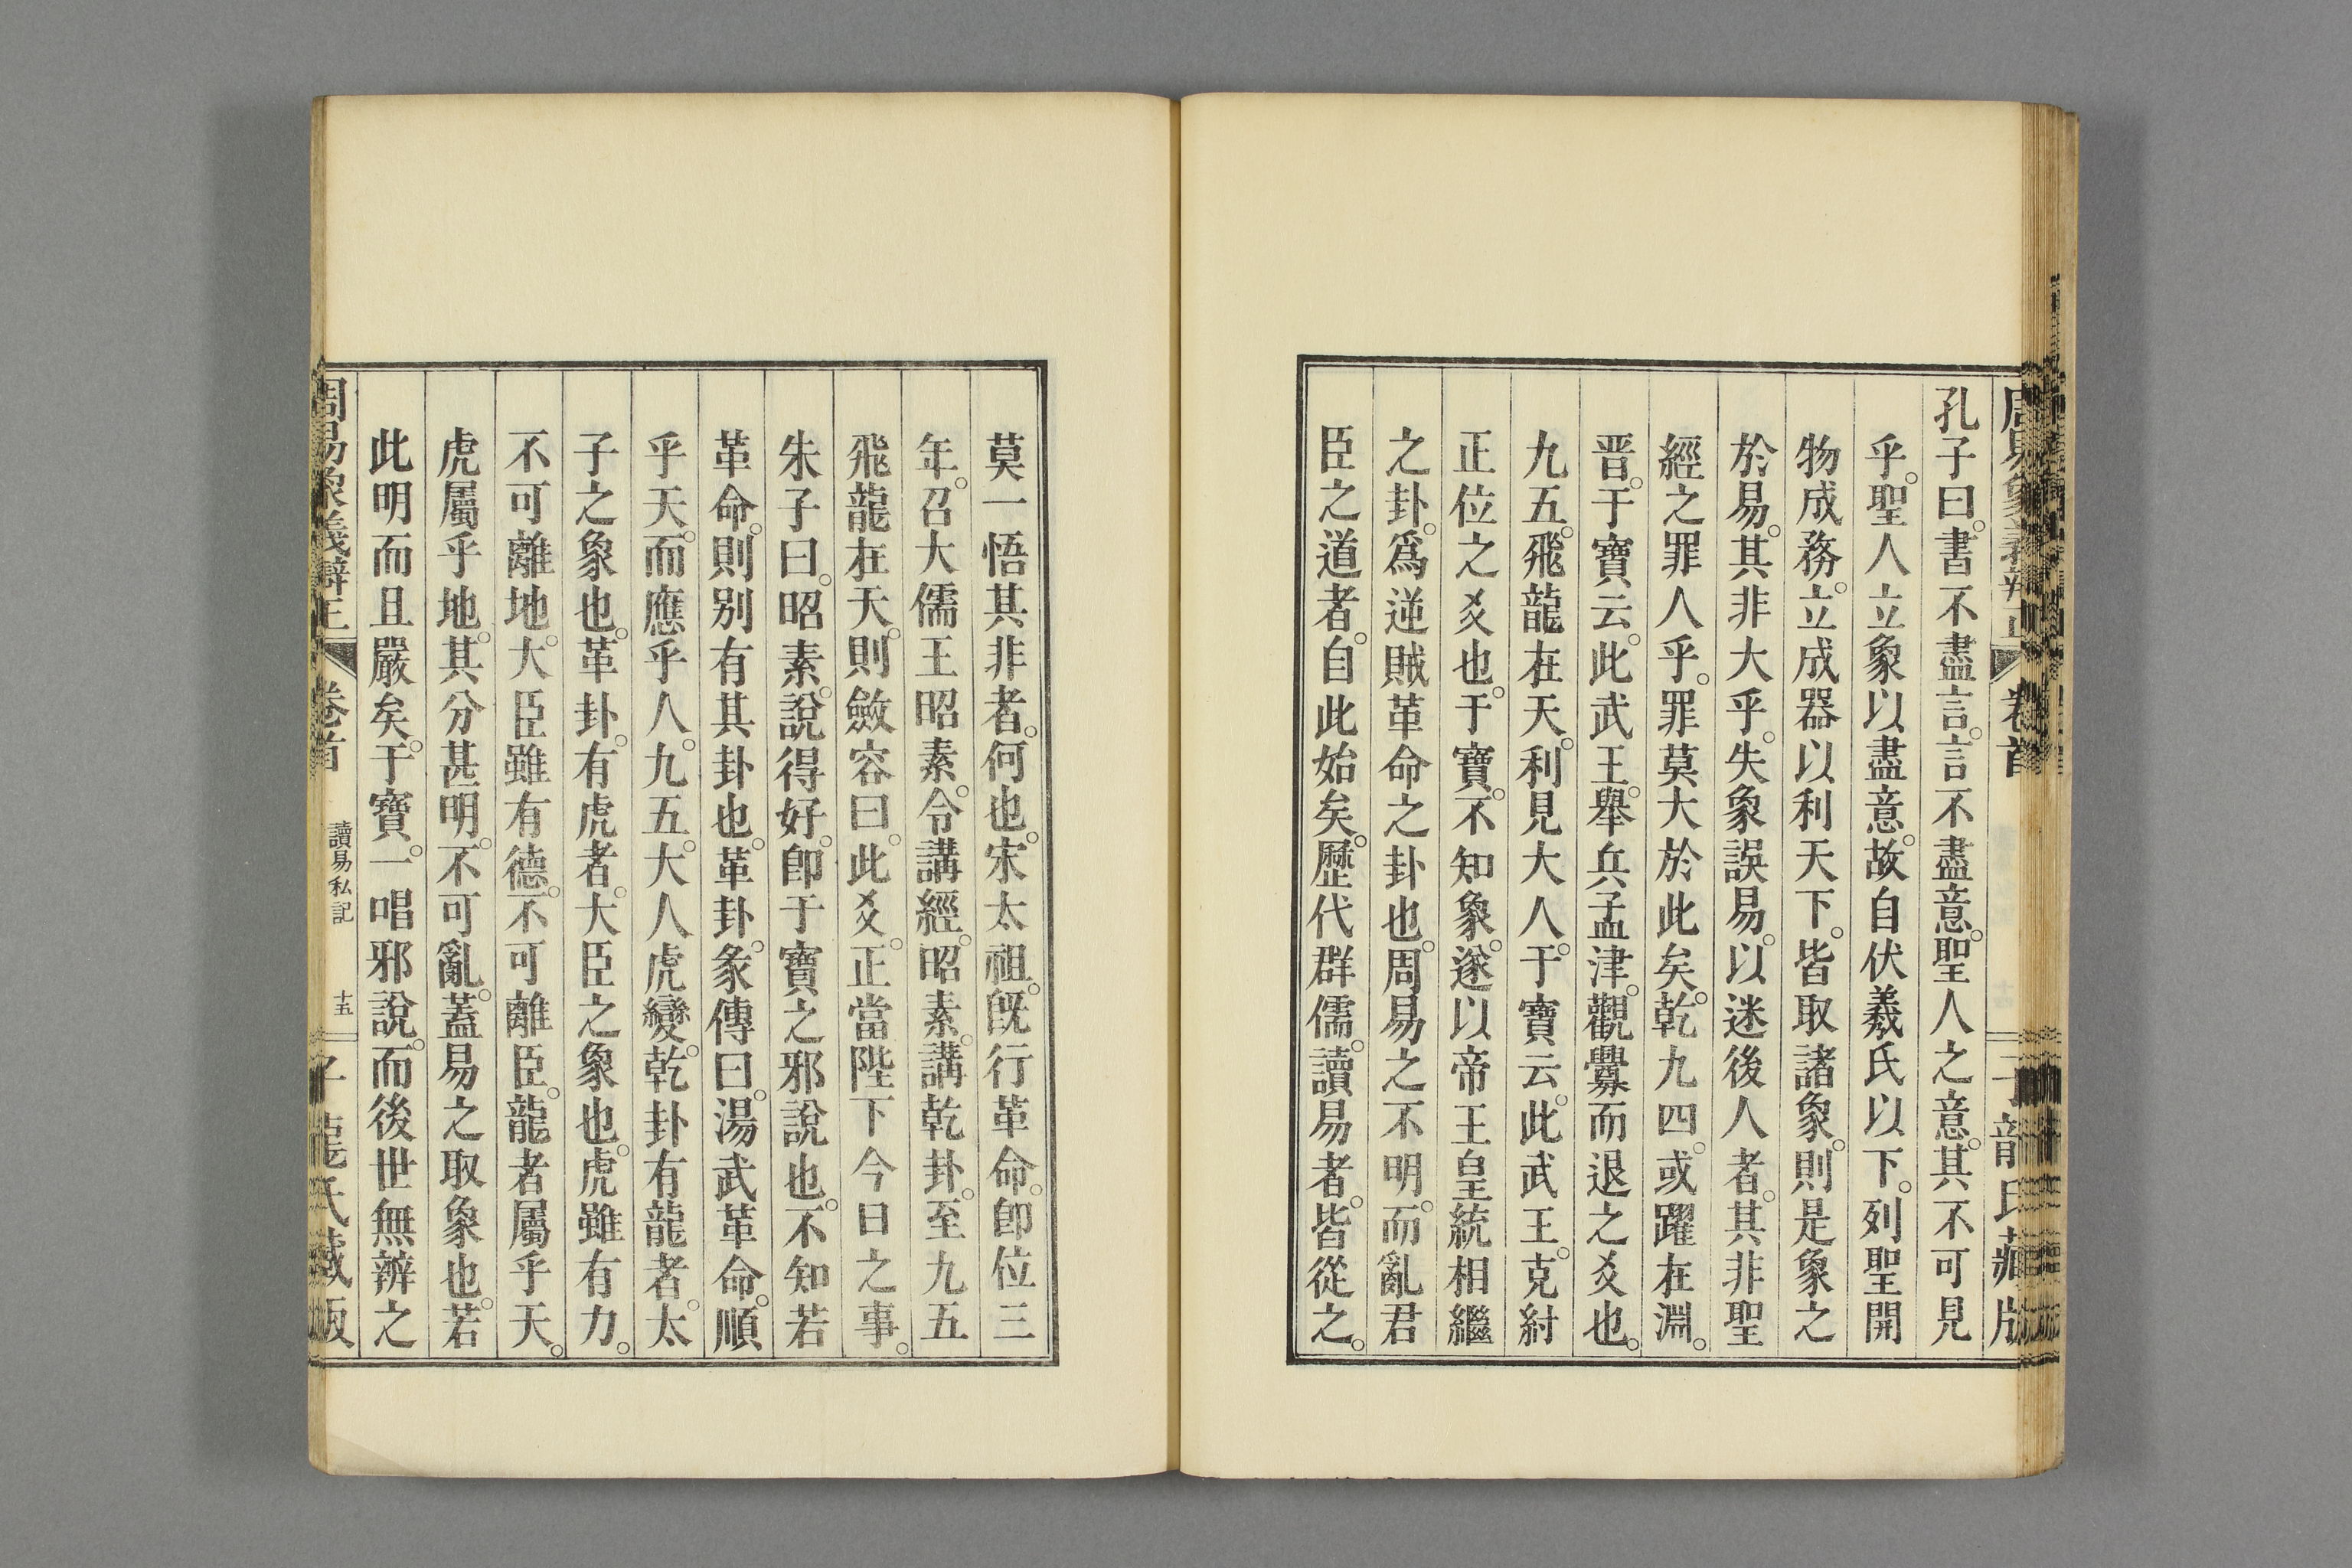 周易象義辨正 卷首 子龍氏藏版
孔子曰。書不盡言。言不盡意。聖人之意。其不可見
乎。聖人立象以盡意。故自伏羲氏以下。列聖開
物成務。立成器以利天下。皆取諸象。則是象之
於易。其非大乎。失象誤易。以迷後人者。其非聖
經之罪人乎。罪莫大於此矣。乾九四。或躍在淵。
晋。于寶云。此武王。舉兵孟津。觀釁而退之爻也。
九五。飛龍在天。利見大人。于寶云。此武王。克紂
正位之爻也。于寶。不知象。遂以帝王皇統相繼
之卦。爲逆賊革命之卦也。周易之不明。而亂君
臣之道者。自此始矣。歷代群儒。讀易者。皆從之。
莫一悟其非者。何也。宋太祖。既行革命。卽位三
年。召大儒王昭素。令講經。昭素。講乾卦。至九五
飛龍在天。則斂容曰。此爻。正當陛下今日之事。
朱子曰。昭素。說得好。卽于寶之邪說也。不知若
革命。則別有其卦也。革卦。彖傳曰。湯武革命。順
乎天。而應乎人。九五。大人虎變。乾卦有龍者。太
子之象也。革卦。有虎者。大臣之象也。虎雖有力。
不可離地。大臣雖有德。不可離臣。龍者屬乎天。
虎屬乎地。其分甚明。不可亂。蓋易之取象也。若
此明而且嚴矣。于寶。一唱邪說。而後世無辨之
周易象義辨正 卷首 讀易私記 十五 子龍氏藏版